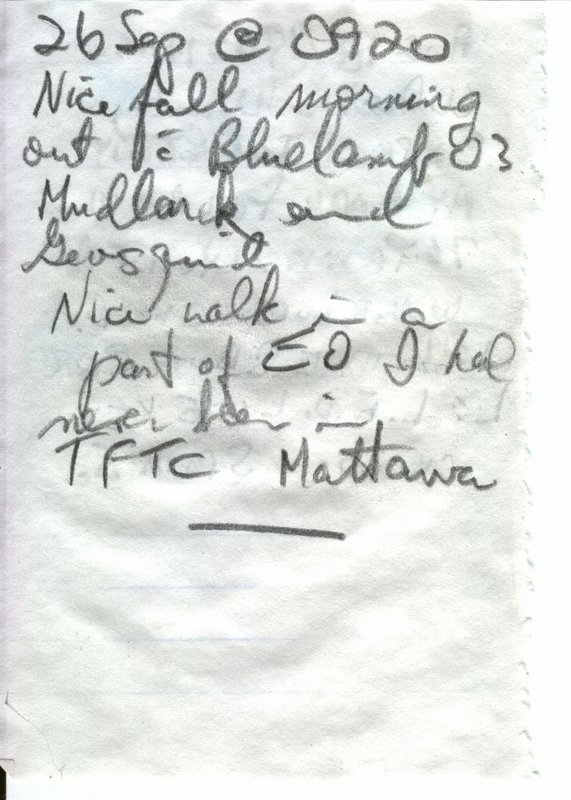 26 Sep @ 0920
Nice fall morning
out c̄ Bluelamb03
Mudlark and
Geosquid
Nice walk in a
part of EO I had
never been in
TFTC Mattawa